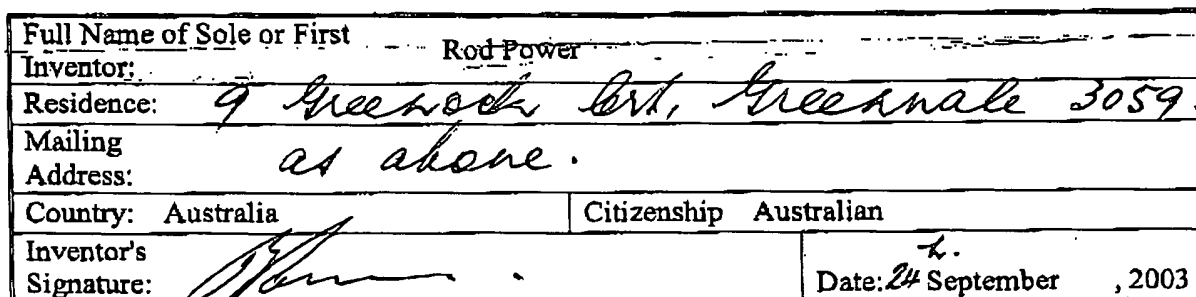 Full Name of Sole or First
Inventor: Rod Power
Residence: 9 Greenock Crt, Greenvale 3059.
Mailing
Address: as above.
Country: Australia Citizenship Australian
Inventor's
Signature:
Date: 24th. September , 2003